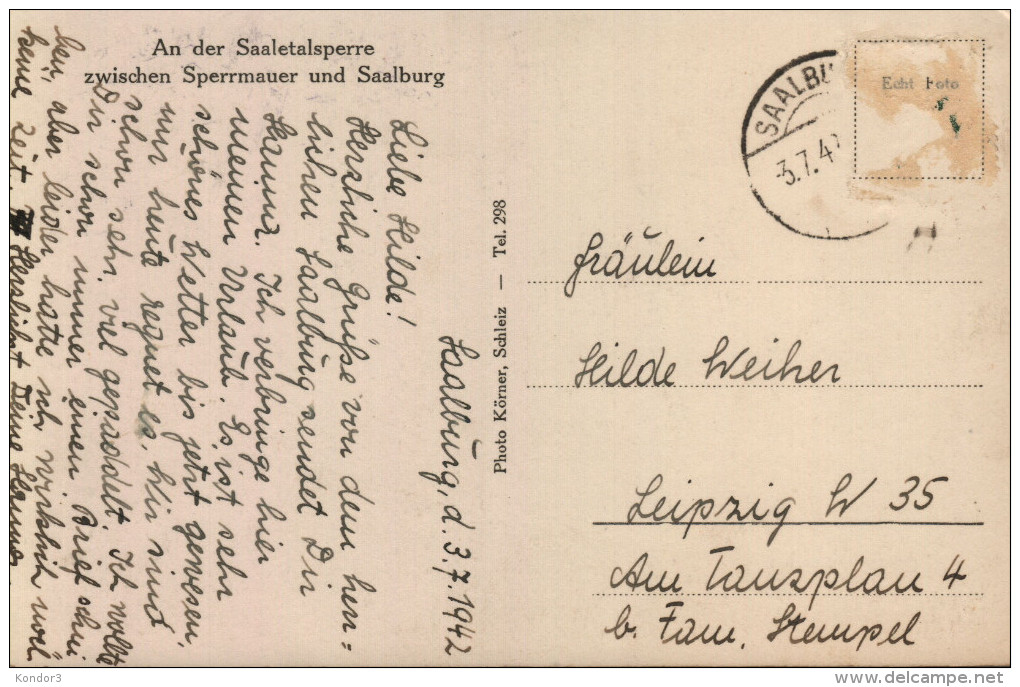 An der Saaletalsperre
zwischen Sperrmauer und Saalburg
Saalburg, d. 3.7.1942
Liebe Hilde!
Herzliche Grüße von dem herr=
lichen Saalburg sendet Dir
Hanna. Ich verbringe hier
meinen Urlaub. Es ist sehr
schönes Wetter bis jetzt gewesen.
nur heute regnet es. Wir sind
schon sehr viel gepaddelt. Ich wollte
Dir schon immer einen Brief schrei
ben, aber leider hatte ich wirklich
keine Zeit. Herzlichst Deine Hanna.
Photo Körner, Schleiz — Tel. 298
SAALBU
3.7.4
Echt Foto
Fräulein
Hilde Weiher
Leipzig W 35
Am Tanzplan 4
b. Fam. Stempel
Kondor3
delcampe.net